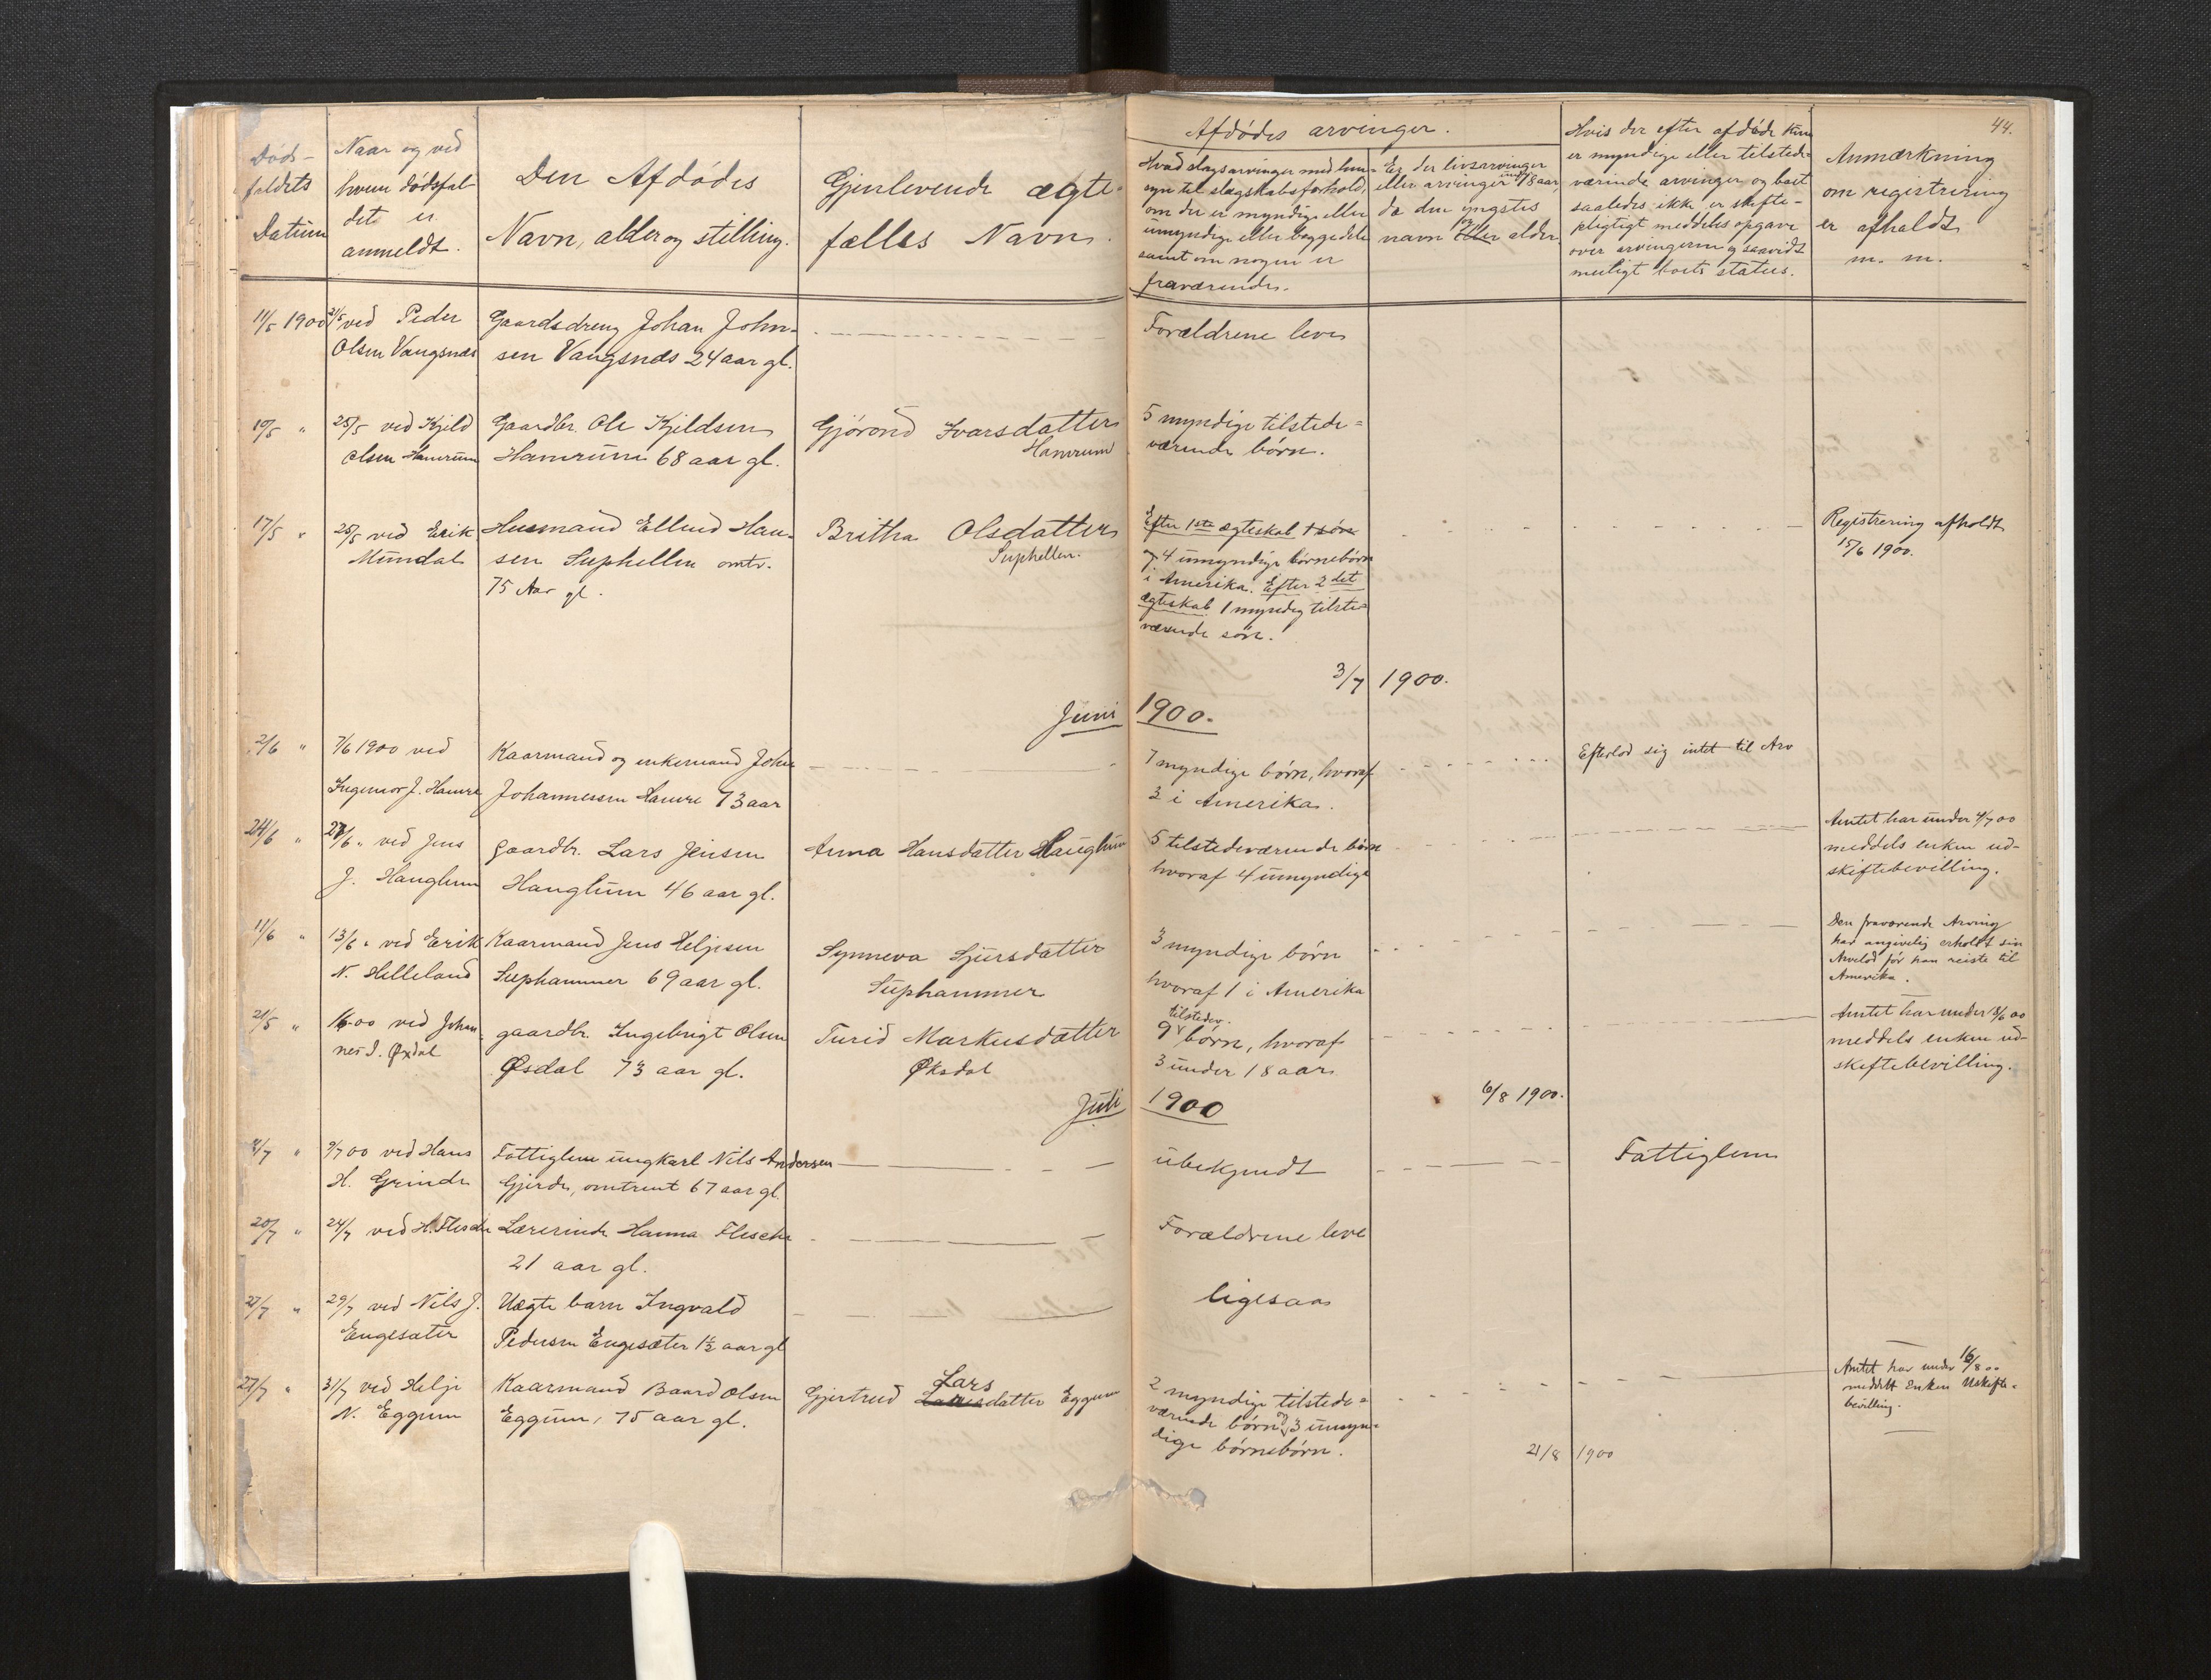 44.
Døds-
faldets
Datum
Naar og ved
hvem dødsfal
det er
anmeldt.
Den Afdødes
Navn, alder og stilling.
Gjenlevende ægte-
fælles Navn.
Afdødes arvinger.
Hvad slags arvinger med hen-
syn til slægtskabsforhold,
om de er myndige eller
umyndige eller begge dele
samt om nogen er
fraværende.
Er der livsarvinger
eller arvinger under 18 aar
da den yngstes
navn eller og alder
Hvis der efter afdøde kun
er myndige eller tilstede-
værende arvinger og boet
saaledes ikke er skifte-
pligtigt meddeles opgave
over arvingerne og saavidt
muligt boets status.
Anmærkning
om registrering
er afholdt
m. m.
11/5 1900
21/5 ved Peder
Olsen Vangsnæs
Gaardsdreng Johan John-
sen Vangsnæs 24 aar gl.
Forældrene leve
19/5 "
25/5 ved Kjeld
Olsen Hamrum
Gaardbr. Ole Kjeldsen
Hamrum 68 aar gl.
Gjørond Ivarsdatter
Hamrum
5 myndige tilstede=
værende børn.
17/5 "
25/5 ved Erik
Mundal
Husmand Ellend Han-
sen Suphellen omtr.
75 Aar gl.
Britha Olsdatter
Suphellen.
Efter 1ste ægteskab 1 søn
og 4 umyndige børnebørn
i Amerika. Efter 2det
ægteskab 1 myndig tilste=
værende søn.
Registrering afholdt
15/6 1900.
3/7 1900.
Juni 1900.
2/6 "
7/6 1900 ved
Ingemor J. Hamre
Kaarmand og enkemand John
Johannessen Hamre 73 aar
7 myndige børn, hvoraf
3 i Amerika.
Efterlod sig intet til Arv
24/6 "
27/6 " ved Jens
J. Hauglum
gaardbr. Lars Jensen
Hauglum 46 aar gl.
Anna Hansdatter Hauglum
5 tilstedeværende børn
hvoraf 4 umyndige
Amtet har under 4/7 00
meddels enken ud-
skiftebevilling.
11/6 "
13/6 " ved Erik
N. Helleland
Kaarmand Jens Heljesen
Suphammer 69 aar gl.
Synneva Sjursdatter
Suphammer
3 myndige børn
hvoraf 1 i Amerika
Den fraværende Arving
har angivelig erholdt sin
Arvelod før han reiste til
Amerika.
21/5 "
ved Johan-
nes I. Øxdal
gaardbr. Ingebrigt Olsen
Øsdal 73 aar gl.
Turid Markusdatter
Øksdal
tilstedev.
9 børn, hvoraf
3 under 18 aar
Amtet har under 18/6 00
meddels enken ud-
skiftebevilling.
6/8 1900.
Juli 1900
8/7 "
9/7 00 ved Hans
H. Grinde
Fattiglem ungkarl Nils Andersen
Gjerde, omtrent 67 aar gl.
ubekjendt
Fattiglem
20/7 "
24/7 ved H. Flesche
Lærerinde Hanna Flesche
21 aar gl.
Forældrene leve
27/7 "
29/7 ved Nils J.
Engesæter
Uægte barn Ingvald
Pedersen Engesæter 1½ aar gl
ligesaa
27/7 "
31/7 ved Helje
N. Eggum
Kaarmand Baard Olsen
Eggum, 75 aar gl.
Lars
Gjertrud datter Eggum
2 myndige tilstede=
værende børn og 3 umyn=
dige børnebørn.
Amtet har under 16/8 00
meddelt Enken Uskifte-
bevilling.
21/8 1900